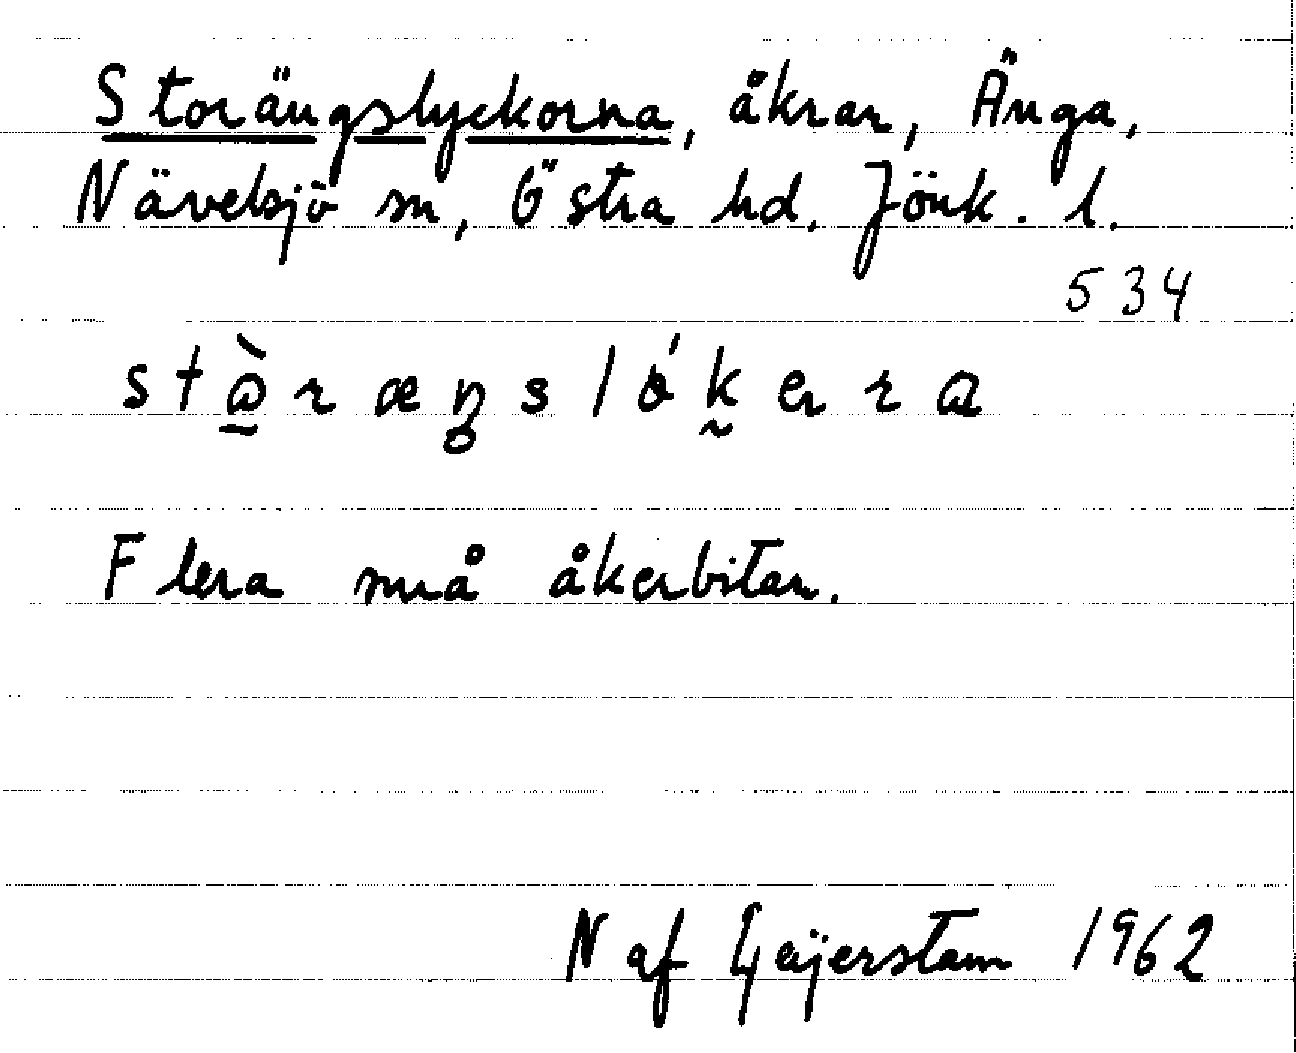 Storängslyckorna, åkrar, Änga,
Nävelsjö sn, Östra hd, Jönk. l.
534
Flera små åkerbitar.
N af Geijerstam 1962